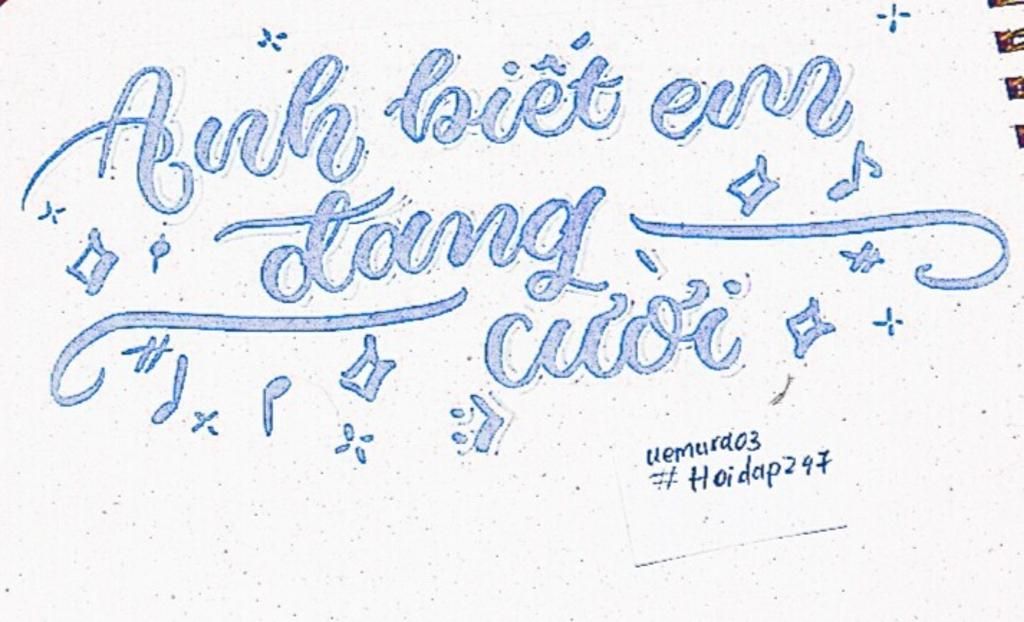 Anh biết em
đang
cười
uemura03
#Hoidap247